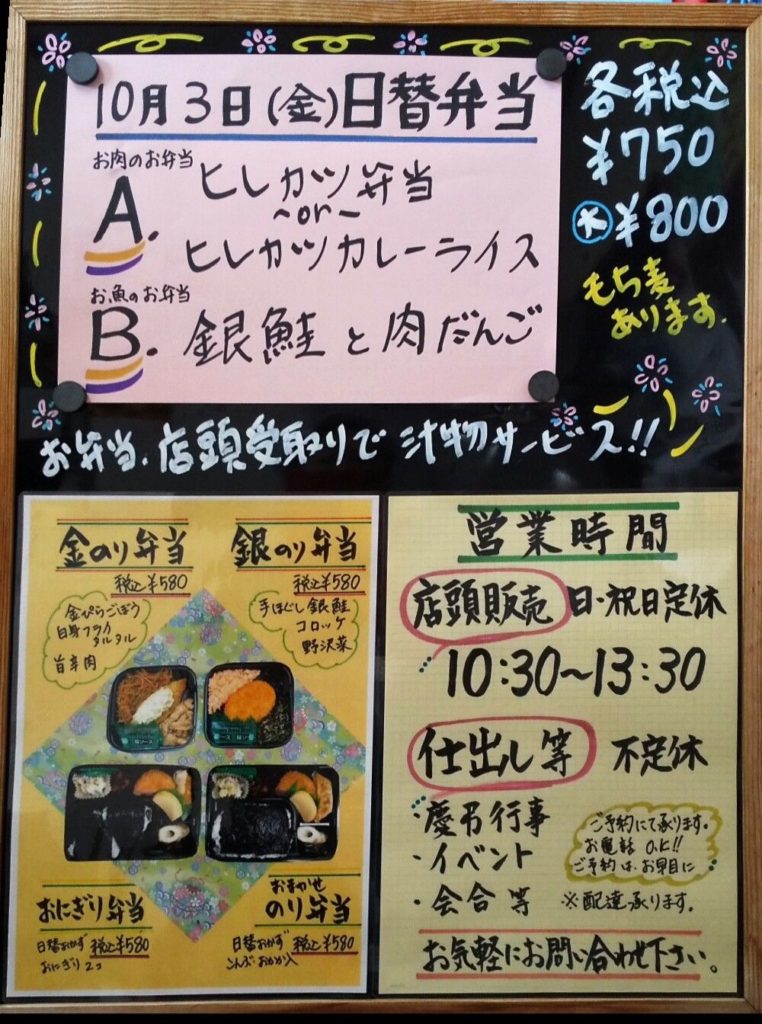 10月3日(金)日替弁当
お肉のお弁当
A.
ヒレカツ弁当
~or~
ヒレカツカレーライス
お魚のお弁当
B. 銀鮭と肉だんご
各税込
¥750
大 ¥800
もち麦
あります.
お弁当、店頭受取りで 汁物サービス!!
金のり弁当
税込¥580
金ぴらごぼう
白身フライ
タルタル
旨辛肉
銀のり弁当
税込¥580
手ほぐし銀鮭
コロッケ
野沢菜
おにぎり弁当
日替おかず 税込¥580
おにぎり2コ
おまかせ
のり弁当
日替おかず 税込¥580
こんぶ・おかか入
営業時間
店頭販売 日・祝日定休
10:30~13:30
仕出し等 不定休
・慶弔行事
・イベント
・会合等
ご予約にて承ります.
お電話 O.K!!
ご予約は、お早目に
※配達承ります.
お気軽にお問い合わせ下さい。